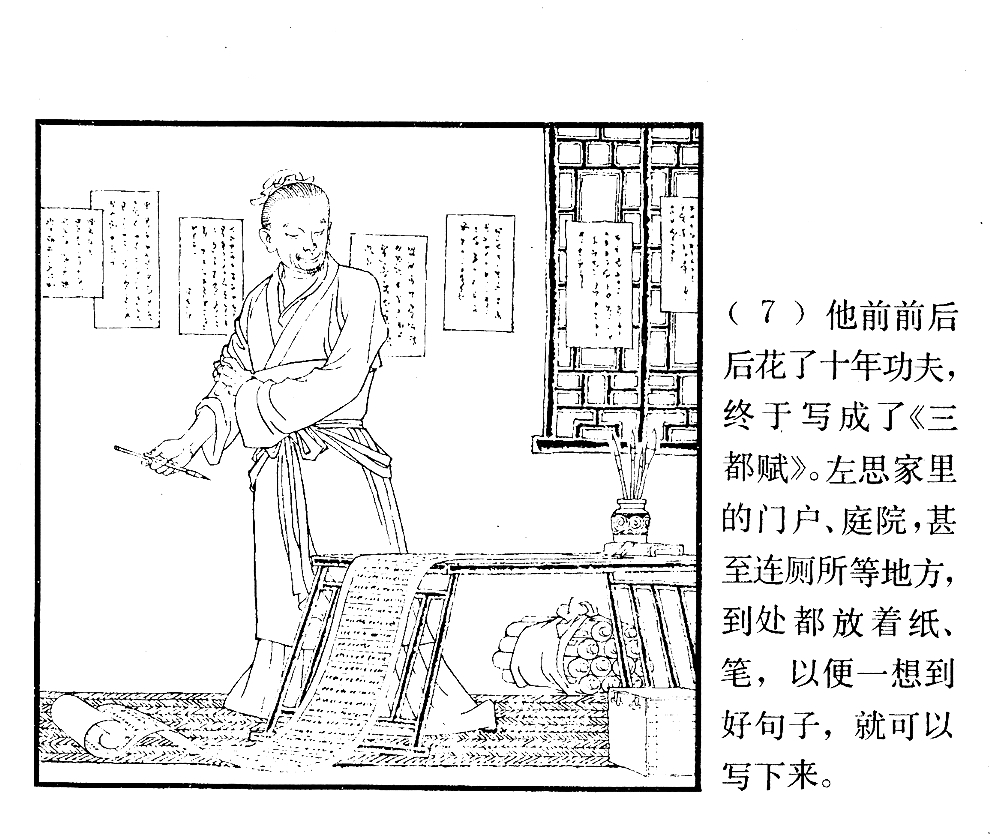 （7）他前前后
后花了十年功夫，
终于写成了《三
都赋》。左思家里
的门户、庭院，甚
至连厕所等地方，
到处都放着纸、
笔，以便一想到
好句子，就可以
写下来。